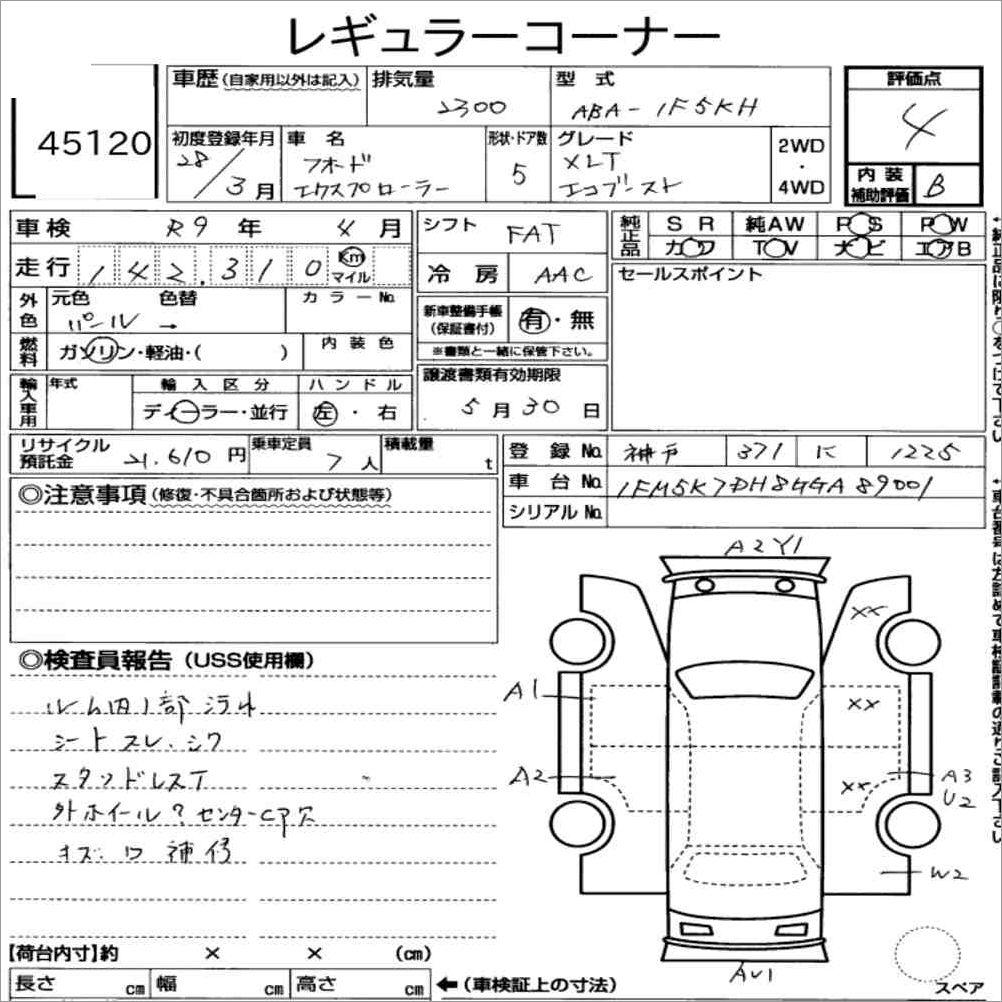 レギュラーコーナー
45120
車歴(自家用以外は記入)
排気量
2300
型式
ABA-1F5KH
評価点
4
初度登録年月
28/3月
車名
フォード
エクスプローラー
形状・ドア数
5
グレード
XLT
エコブースト
2WD
・
4WD
内装
補助評価
B
車検 R9年 4月
走行 142,310 Km マイル
シフト FAT
冷房 AAC
純正品
SR 純AW PS PW
カワ TV ナビ エアB
セールスポイント
外色
元色 色替
パール →
カラーNo.
新車整備手帳
(保証書付)
有・無
※書類と一緒に保管下さい。
燃料
ガソリン・軽油・( )
内装色
譲渡書類有効期限
5月30日
輸入車用
年式
輸入区分
ディーラー・並行
ハンドル
左・右
リサイクル
預託金
21,610円
乗車定員
7人
積載量
t
登録No. 神戸 371 に 1225
車台No. 1FM5K7DH8GGA89001
シリアルNo.
◎注意事項(修復・不具合箇所および状態等)
A2Y1
XX
◎検査員報告(USS使用欄)
ルーム内1部汚れ
シートスレ、シワ
スタッドレスT
外ホイール?センターCP穴
キズ
補修
A1
XX
A2
XX
A3
U2
W2
AU1
スペア
【荷台内寸】約 × × (cm)
長さ cm 幅 cm 高さ cm ←(車検証上の寸法)